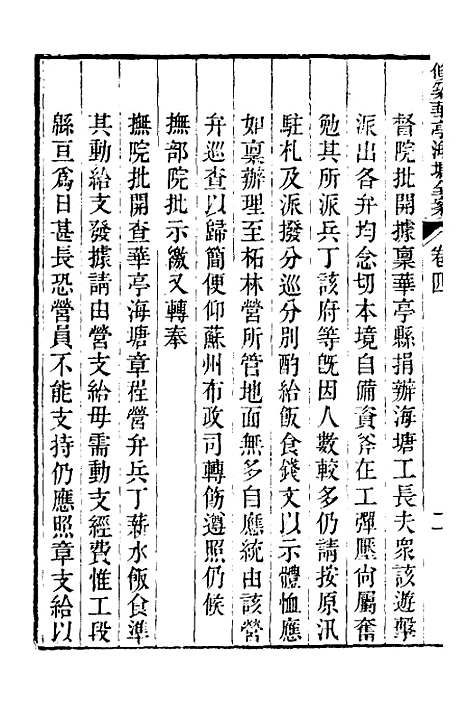 修築華亭海塘全案
卷四
二
督院批開據稟華亭縣捐辦海塘工長夫衆該遊擊
派出各弁均念切本境自備資斧在工彈壓尙屬奮
勉其所派兵丁該府等旣因人數較多仍請按原汛
駐札及派撥分巡分別酌給飯食錢文以示體恤應
如稟辦理至柘林營所管地面無多自應統由該營
弁巡查以歸簡便仰蘇州布政司轉飭遵照仍候
撫部院批示繳又轉奉
撫院批開查華亭海塘章程營弁兵丁薪水飯食準
其動給支發據請由營支給毋需動支經費惟工段
緜亘爲日甚長恐營員不能支持仍應照章支給以